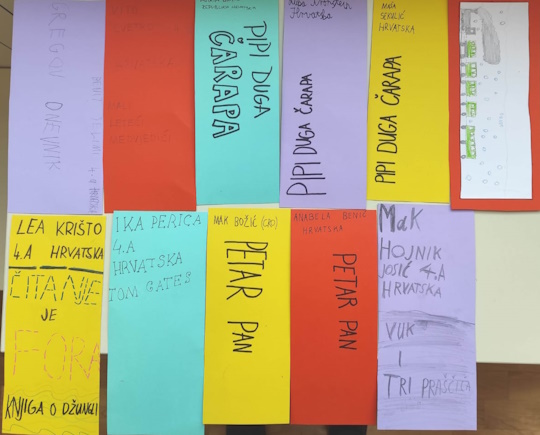 GREGOV DNEVNIK
PIPI DUGA
ČARAPA
Hrvatska
PIPI DUGA ČARAPA
MAŠA
SEKULIĆ
HRVATSKA
PIPI DUGA ČARAPA
LEA KRIŠTO
4.A HRVATSKA
ČITANJE
JE
FORA
KNJIGA O DŽUNGLI
IKA PERICA
4.A
HRVATSKA
TOM GATES
MAK BOŽIĆ (CRO)
PETAR PAN
ANABELA BENIĆ
HRVATSKA
PETAR PAN
MaK
HOJNIK
JOSIĆ 4.A
HRVATSKA
VUK
I
TRI PRAŠČIĆA